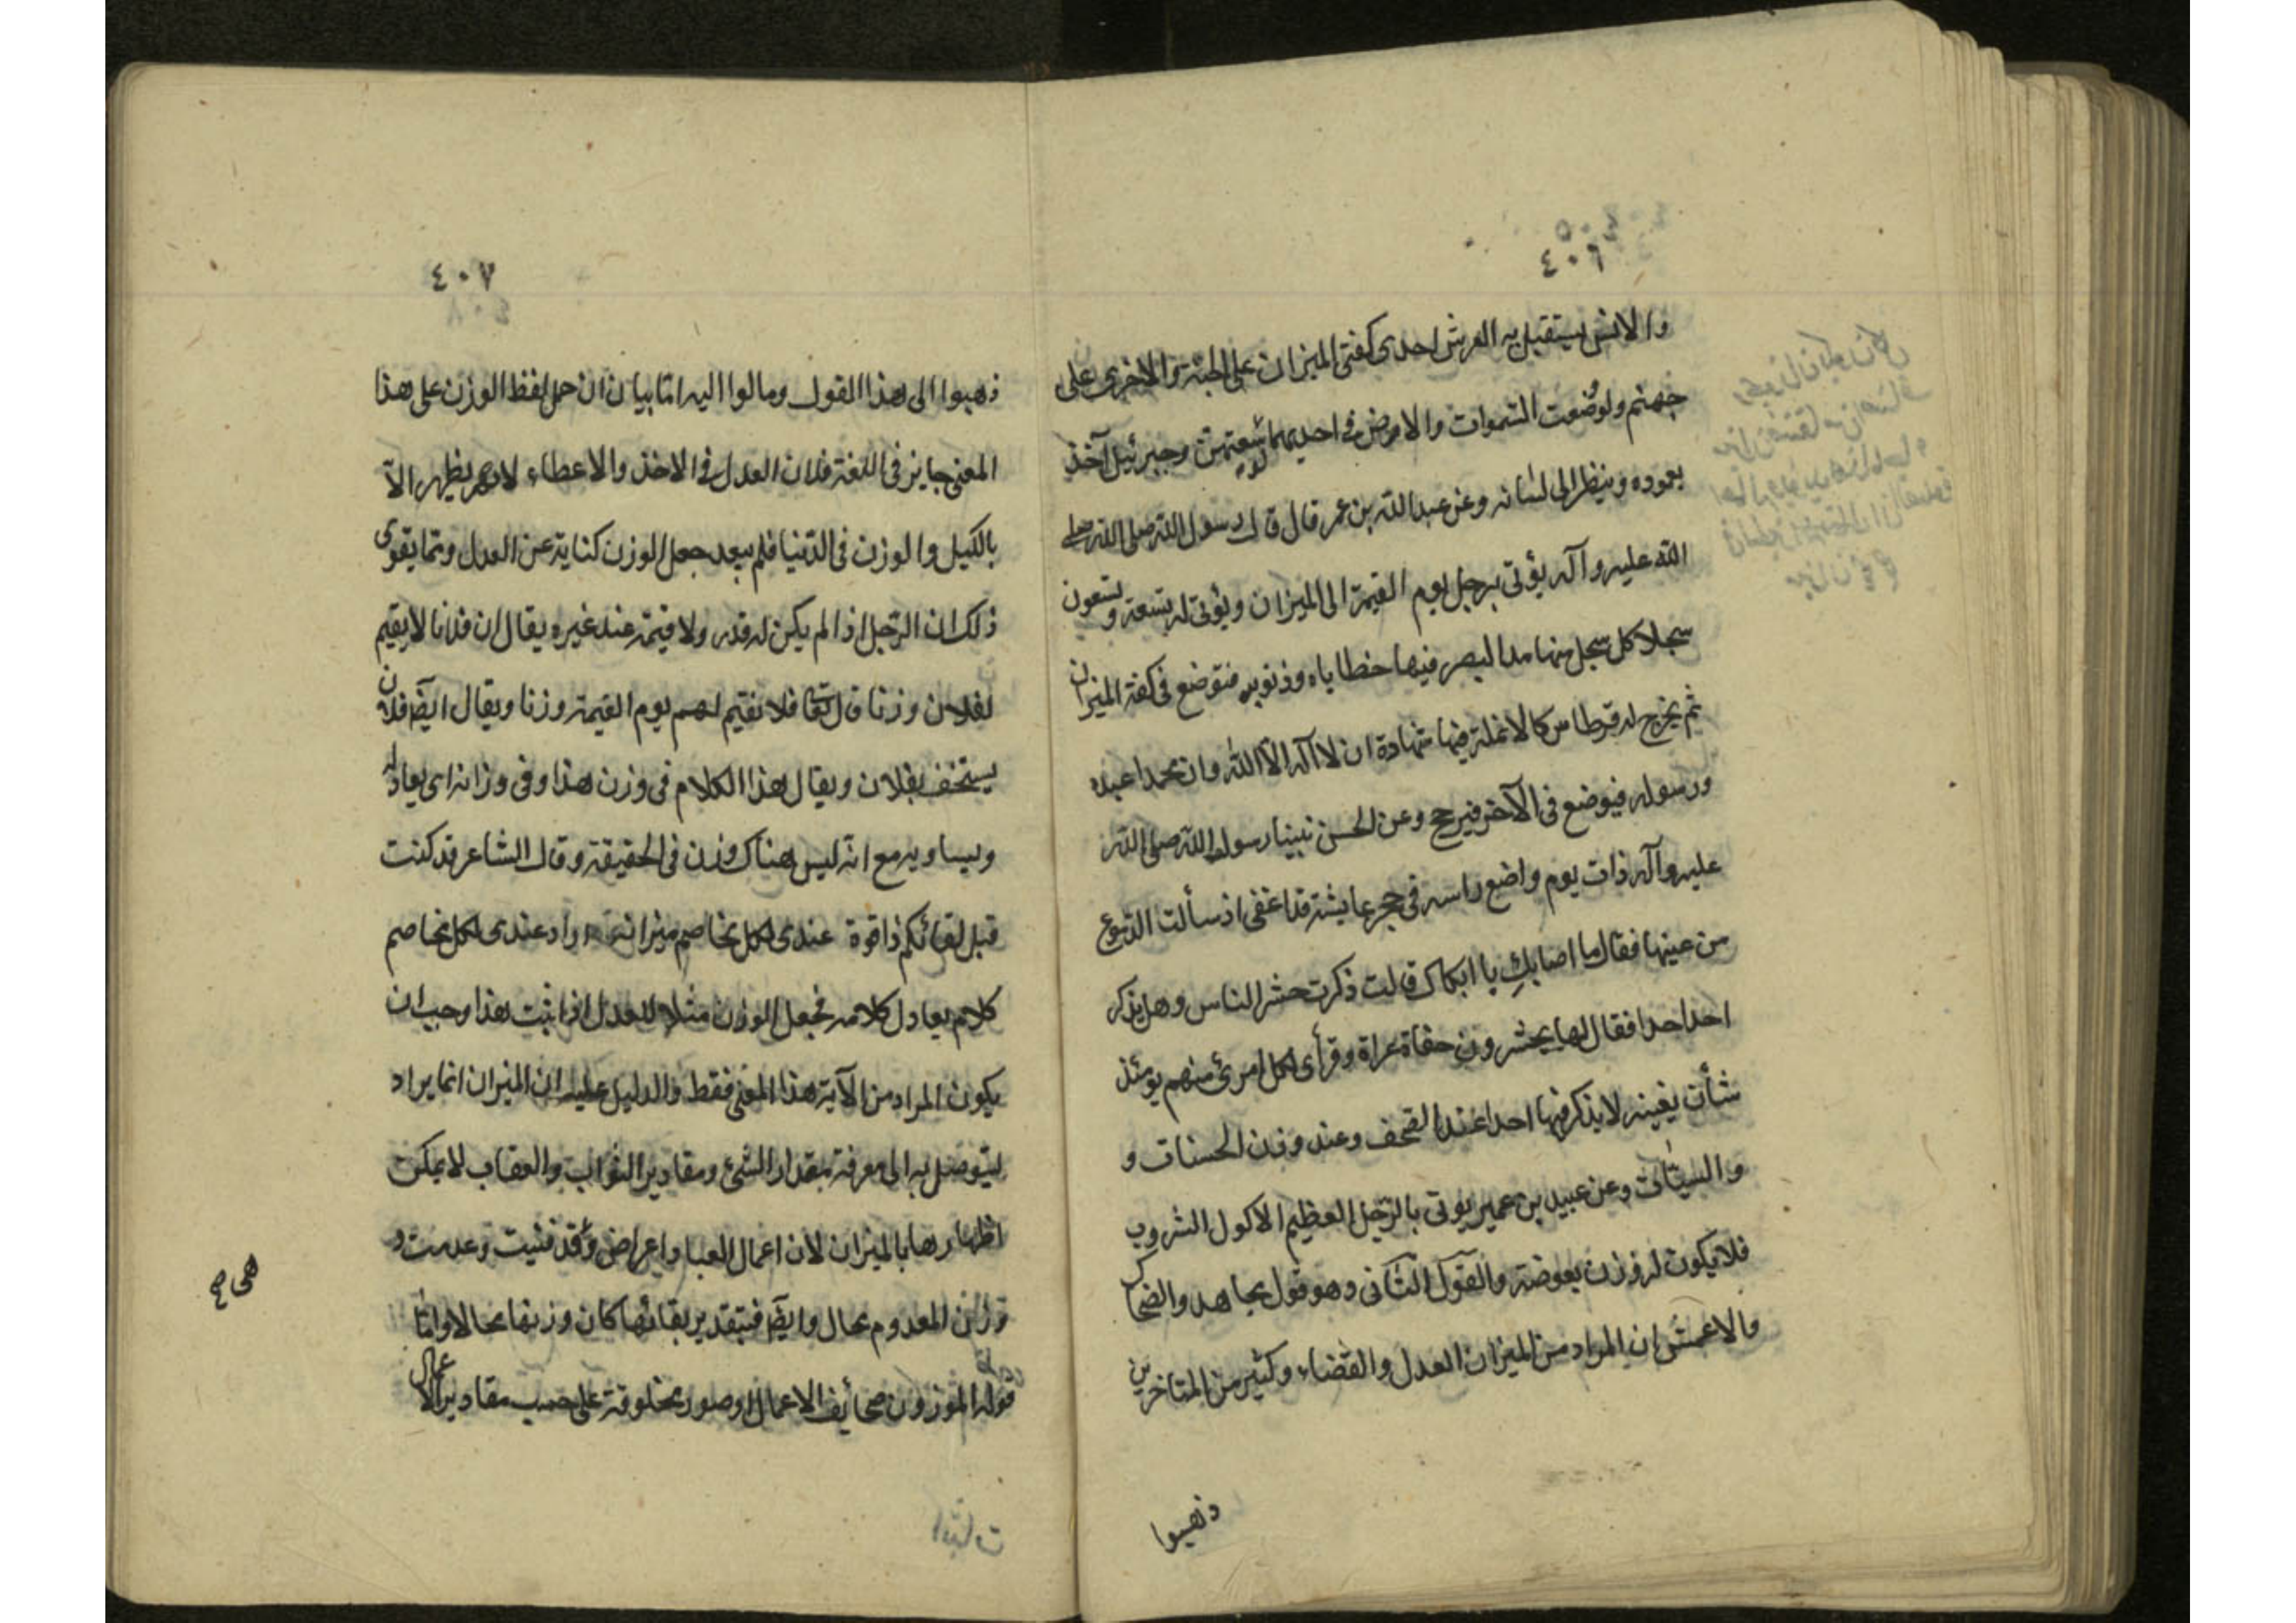 ٤٠٦
والانس يستقبل به العرش احدى كفتى الميزان على الجنة والاخرى على
جهنم ولو وضعت السموات والارض فى احديهما لوسعتهن وجبرئيل آخذ
بعموده وينظر الى لسانه وعن عبد الله بن عمر قال قال رسول الله صلى الله صلى
الله عليه وآله يؤتى برجل يوم القيمة الى الميزان ويؤتى له بتسعة وتسعون
سجلا كل سجل منها مد البصر فيها خطاياه وذنوبه فتوضع فى كفة الميزان
ثم يخرج له قرطاس كالانملة فيها شهادة ان لا آله الا الله وان محمدا عبده
ورسوله فيوضع فى الآخر فيرجح وعن الحسن نبينا رسول الله صلى الله
عليه وآله ذات يوم واضع راسه فى حجر عايشة قد اغفى اذ سألت الدموع
من عينها فقال ما اصابكِ يا ابكاك قالت ذكرت حشر الناس وهل يذكر
احد احدا فقال لها يحشرون حفاة عراة وقرأى لكل امرئ منهم يومئذ
شأن يغينه لا يذكر فيها احد اعند الصحف وعند وزن الحسنات و
والسيئات وعن عبيد بن عمير يوتى بالرجل العظيم الاكول الشروب
فلا يكون له وزن بعوضة والقول الثانى وهو قول مجاهد والضحاك
والاعمش ان المراد من الميزان العدل والقضاء وكثير من المتاخرين
ذهبوا
٤٠٧
ذهبوا الى هذا القول ومالوا اليه امّا بيان ان حمل لفظ الوزن على هذا
المعنى جايز فى اللغة فلان العدل فى الاخذ والاعطاء لا يظهر الّا
بالكيل والوزن فى الدّنيا فلم يبعد جعل الوزن كناية عن العدل وممّا يقوى
ذلك ان الرّجل اذا لم يكن له قدر ولا قيمة عند غيره يقال ان فلانا لا يقيم
لفلان وزنا قال تعا فلا نقيم لهم يوم القيمة وزنا ويقال ايضا فلان
يستخف بفلان ويقال هذا الكلام فى وزن هذا وفى وزانه اى يعادله
ويساويه مع انه ليس هناك وزن فى الحقيقة وقال الشاعر قد كنت
قبل لقائكم ذا قوة عندى لكل مخاصم ميزانه اراد عندى لكل مخاصم
كلام يعادل كلامه فجعل الوزن مثلا للعدل اذا ثبت هذا وجب ان
يكون المراد من الآية هذا المعنى فقط والدليل عليه ان الميزان انما يراد
ليتوصل به الى معرفة مقدار الشئ ومقادير الثواب والعقاب لا يمكن
اظهارها بالميزان لان اعمال العباد اعراض وقد فنيت وعدمت و
وزن المعدوم محال وايضا فبتقدير بقائها كان وزنها محالا واما
قوله الموزون صحائف الاعمال او صور مخلوقة على حسب مقادير الاعمال